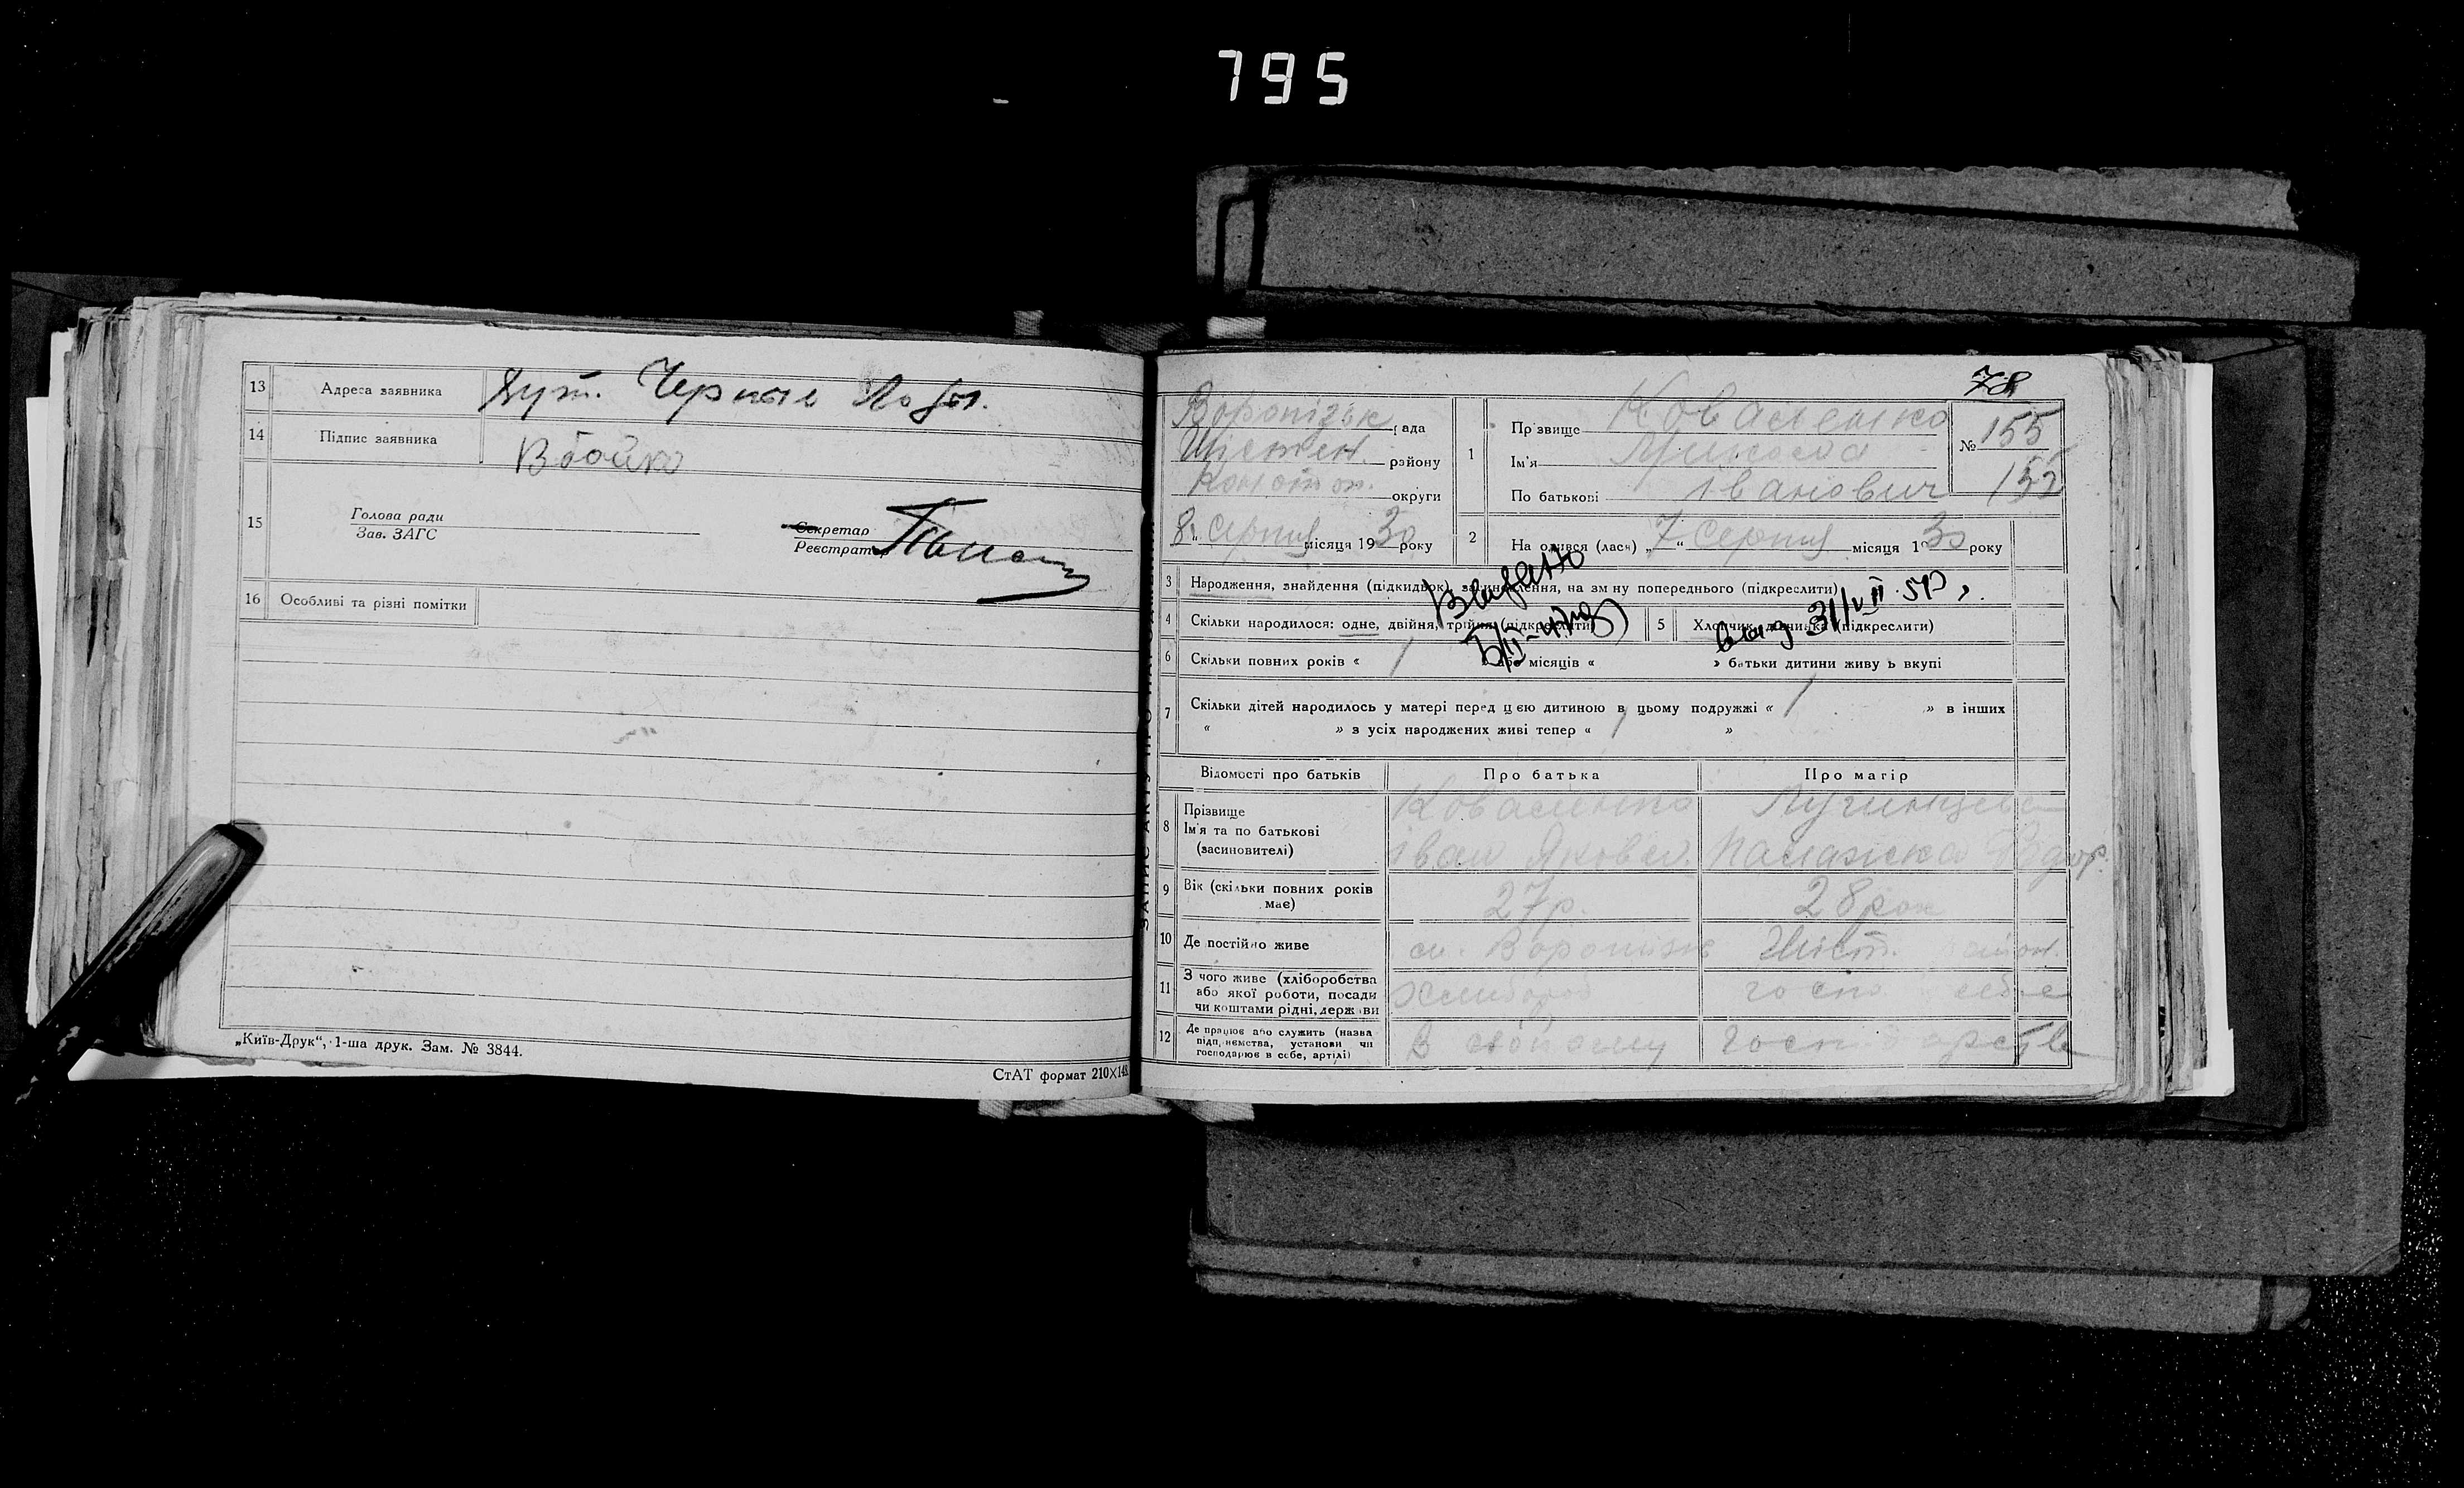 795
13 Адреса заявника Хут.
14 Підпис заявника Вбойко
15 Голова ради Секретар
Зав. ЗАГС Реєстратор
16 Особливі та різні помітки
„Київ-Друк“, 1-ша друк. Зам. № 3844.
СтАТ формат 210×148
ЗАПИС АКТУ ПРО НАРОДЖЕННЯ
78
Вороніжськ рада
Шістен. району
Конотоп. округи
„8“ Серпня місяця 1930 року
1 Прізвище Коваленко
Ім'я Микола
По батькові Іванович
№ 155
155
2 На одився (лась) „7“ Серпня місяця 1930 року
3 Народження, знайдення (підкидьок), засиновлення, на зм ну попереднього (підкреслити)
4 Скільки народилося: одне, двійня, трійня (підкреслити)
5 Хлопчик, дівчинка (підкреслити)
6 Скільки повних років « 1 » або місяців « » батьки дитини живу ь вкупі
7 Скільки дітей народилось у матері перед цією дитиною в цьому подружжі « 1 » в інших
« » з усіх народжених живі тепер « 1 »
Відомості про батьків Про батька Про матір
8 Прізвище Коваленко
Ім'я та по батькові Іван Яковл.
(засиновителі)
9 Вік (скільки повних років має) 27р. 28рок
10 Де постійно живе см. Вороніж Шіст. район.
11 З чого живе (хліборобства
або якої роботи, посади
чи коштами рідні, держави Хлібороб
12 Де працює або служить (назва
підприємства, установи чи
господарює в себе, артілі) В своєму господарстві